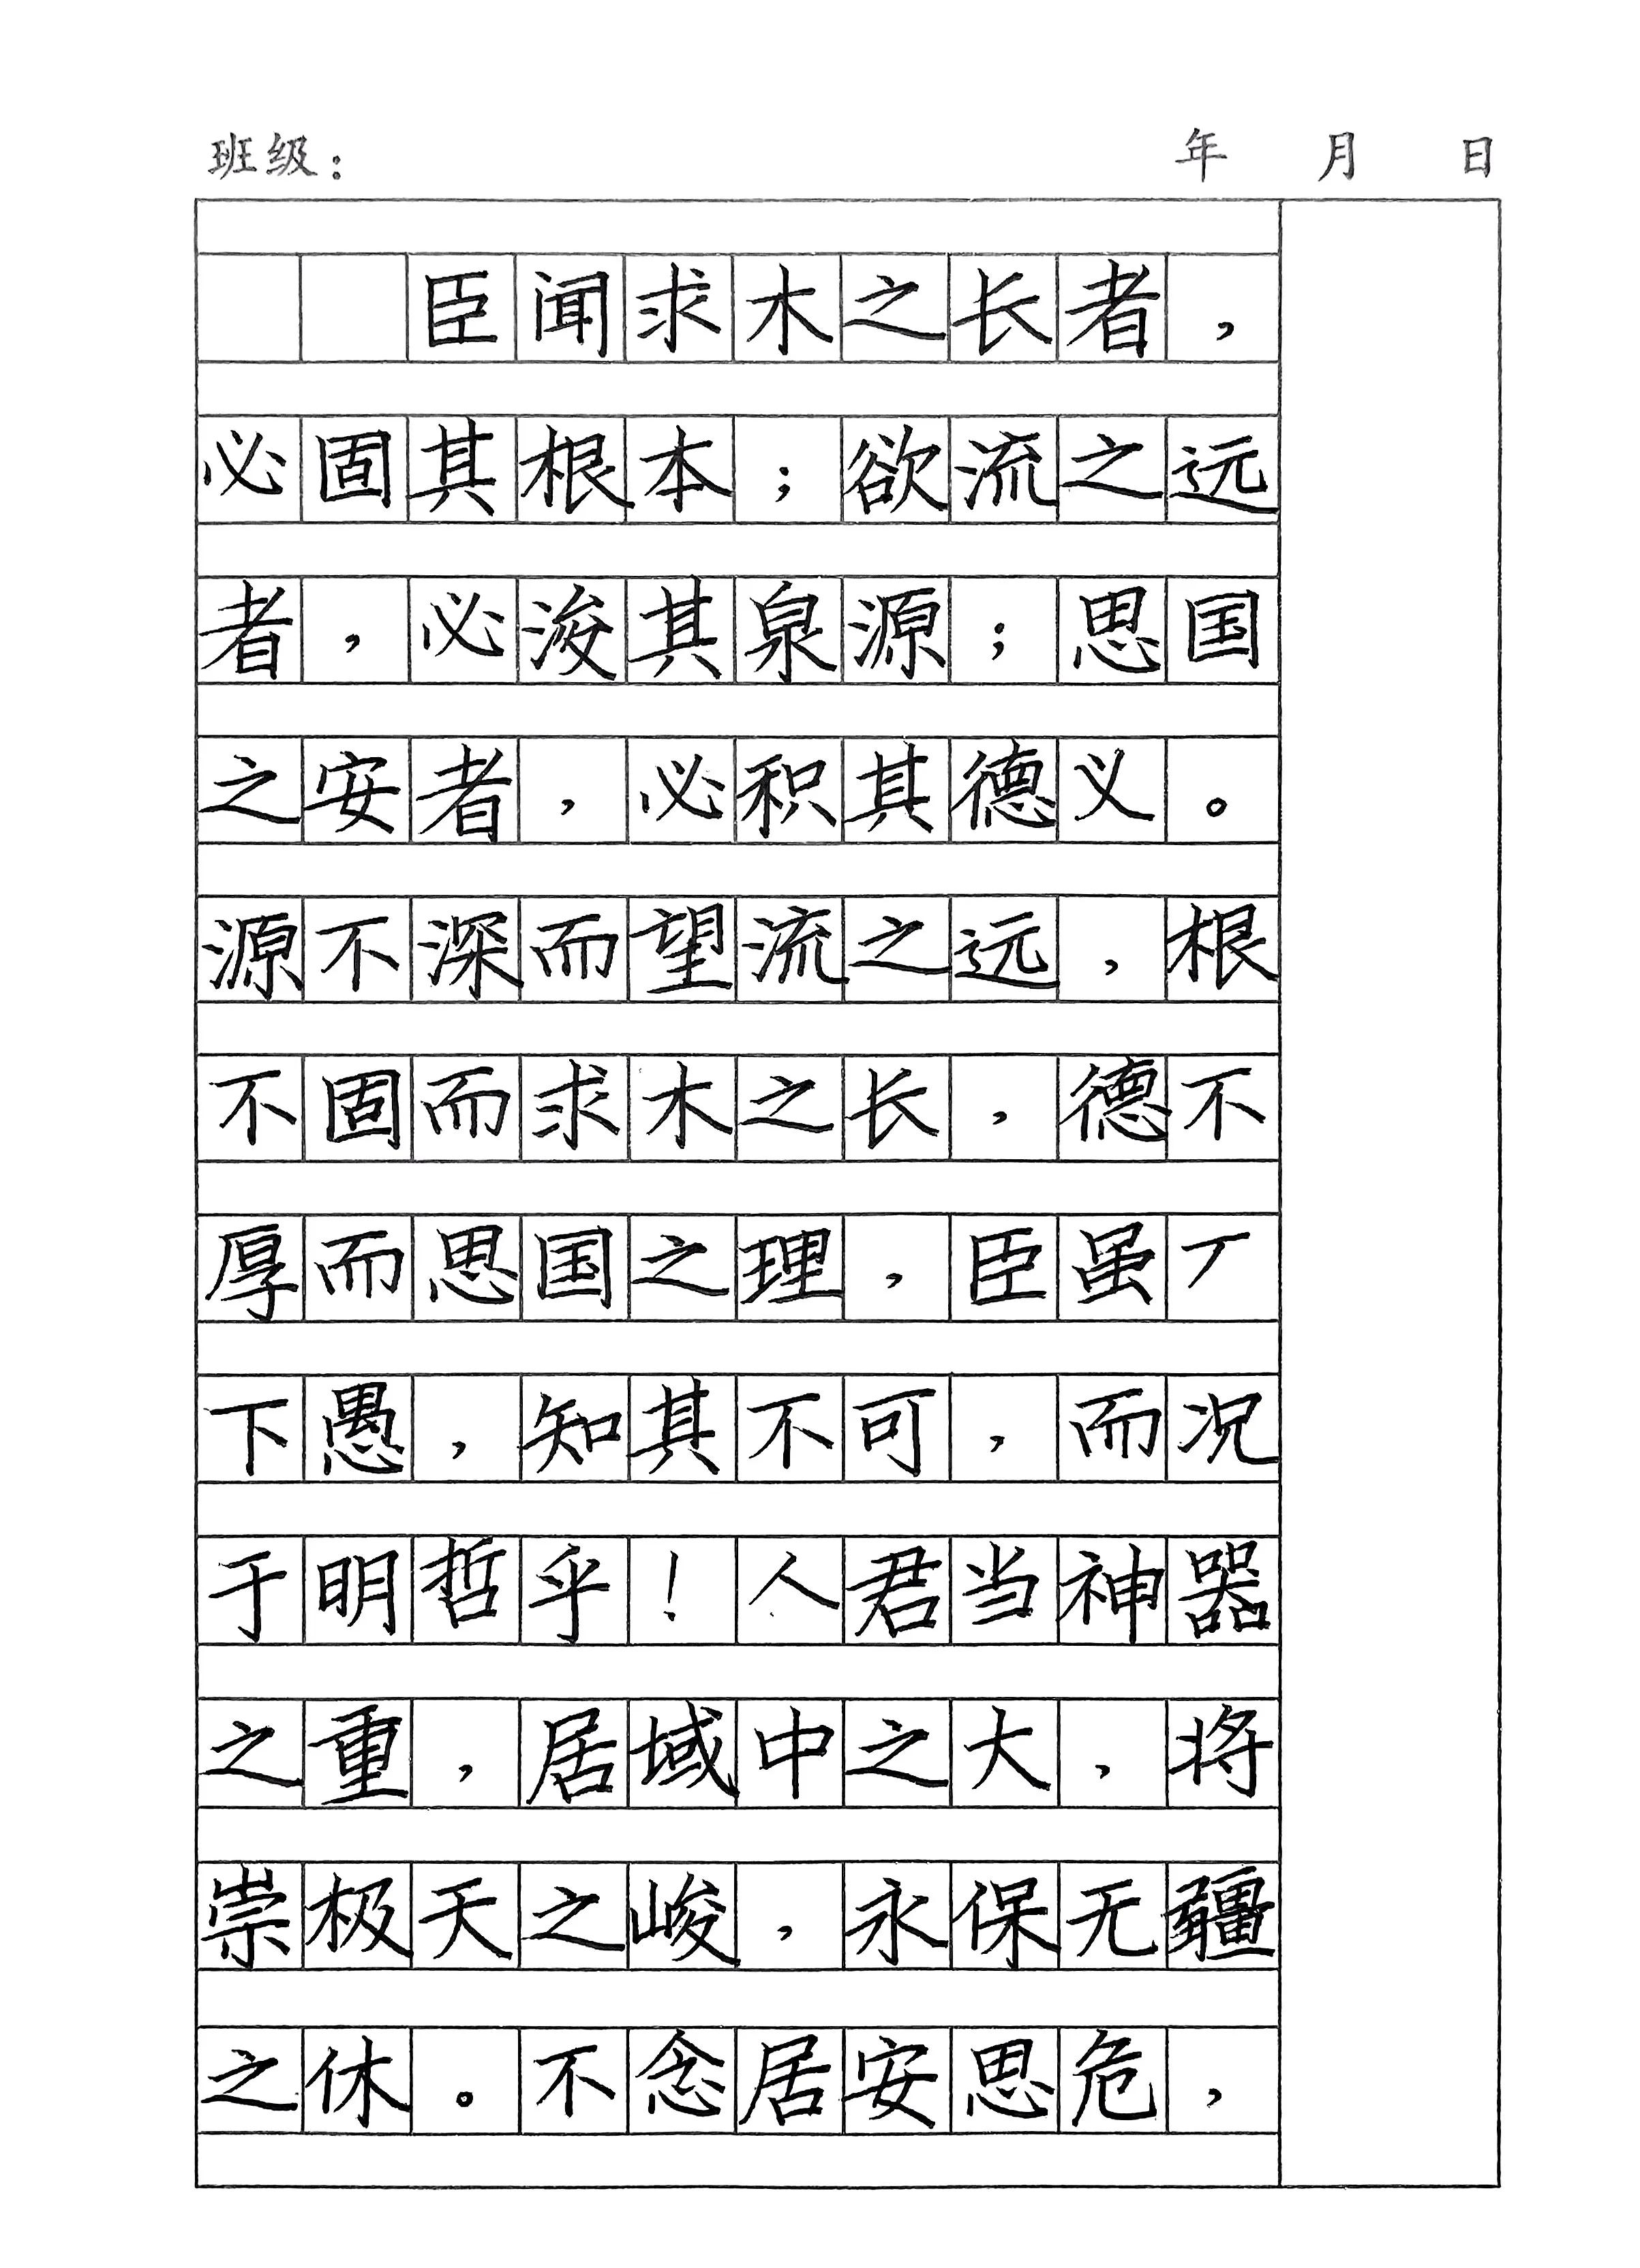 班级： 年 月 日
臣闻求木之长者，
必固其根本；欲流之远
者，必浚其泉源；思国
之安者，必积其德义。
源不深而望流之远，根
不固而求木之长，德不
厚而思国之理，臣虽丆
下愚，知其不可，而况
于明哲乎！人君当神器
之重，居域中之大，将
崇极天之峻，永保无疆
之休。不念居安思危，